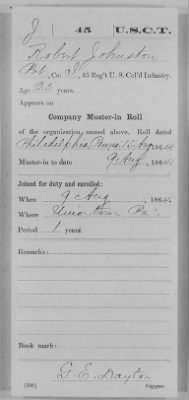 J | 45 | U.S.C.T.
Robert Johnston
Pvt, Co. J, 45 Reg't U. S. Col'd Infantry.
Age 25 years.
Appears on
Company Muster-in Roll
of the organization named above. Roll dated
Philadelphia Penna, 15 Aug, 1864.
Muster-in to date 9 Aug, 1864.
Joined for duty and enrolled:
When 9 Aug, 1864.
Where Uniontown Pa.
Period 1 years.
Remarks:
Book mark:
G. E. Drayton
(356) Copyist.